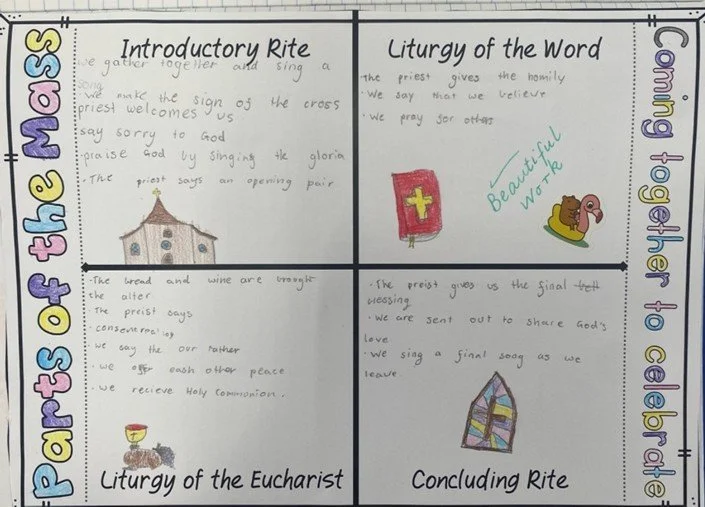 Parts of the Mass
Introductory Rite
we gather together and sing a
song
we make the sign of the cross
priest welcomes us
say sorry to God
·praise God by singing the gloria
·The priest says an opening pair
Liturgy of the Word
the priest gives the homily
·We say that we believe
·We pray for others
Beautiful
work
Coming together to celebrate
·The bread and wine are brought
the alter
·The preist says
·we say the our father
·we each other peace
·we recieve Holy Communion.
Liturgy of the Eucharist
·The preist gives us the final
blessing
·We are sent out to share God's
love
·We sing a final song as we
leave.
Concluding Rite